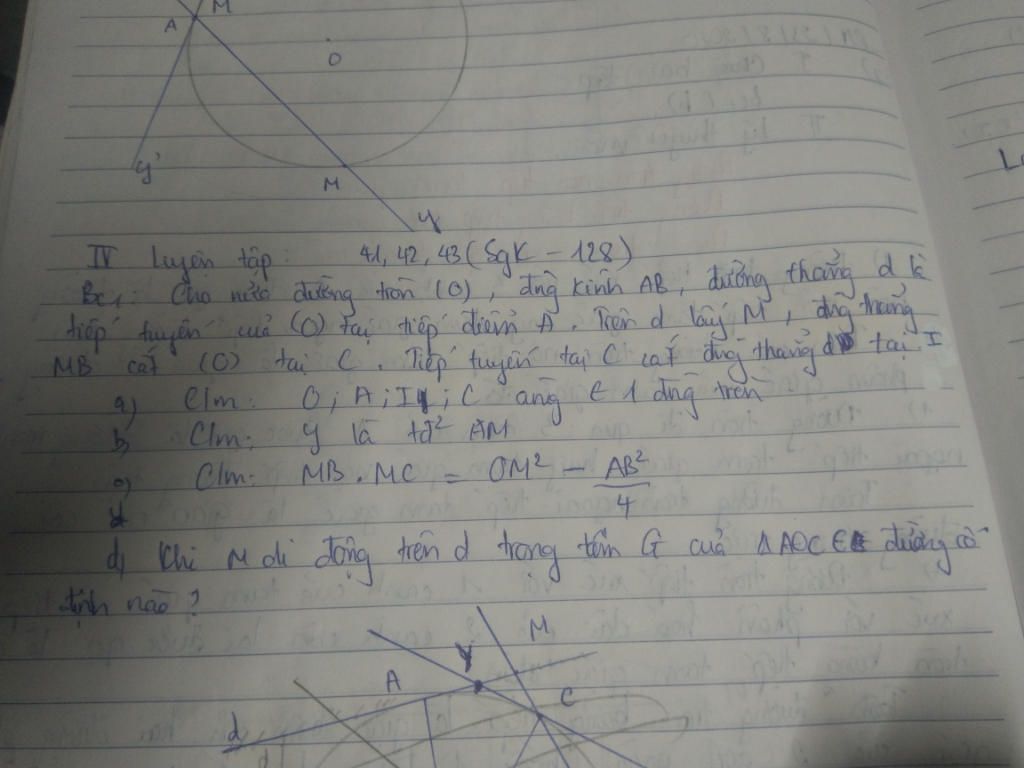 A M
O
y'
M
y
IV Luyện tập: 41, 42, 43 (Sgk - 128)
Bc1: Cho nửa đường tròn (O), đng kính AB, đường thẳng d là
tiếp tuyến của (O) tại tiếp điểm A. Trên d lấy M, đng thẳng
MB cắt (O) tại C. Tiếp tuyến tại C cắt đng thẳng d tại I
a) C/m: O; A; I; C cùng ∈ 1 đng tròn
b, C/m: y là tđ² AM
c) C/m: MB . MC = OM² - AB²/4
d) Khi M di động trên d trọng tâm G của ΔAOC ∈ đường cố
định nào?
M
A
C
d